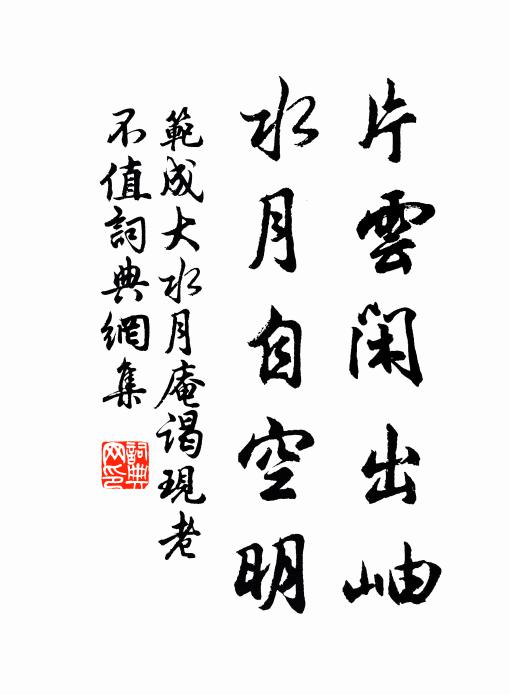 片雲閑出岫
水月自空明
範成大水月庵謁現老
不值詞典網集
詞典
网印